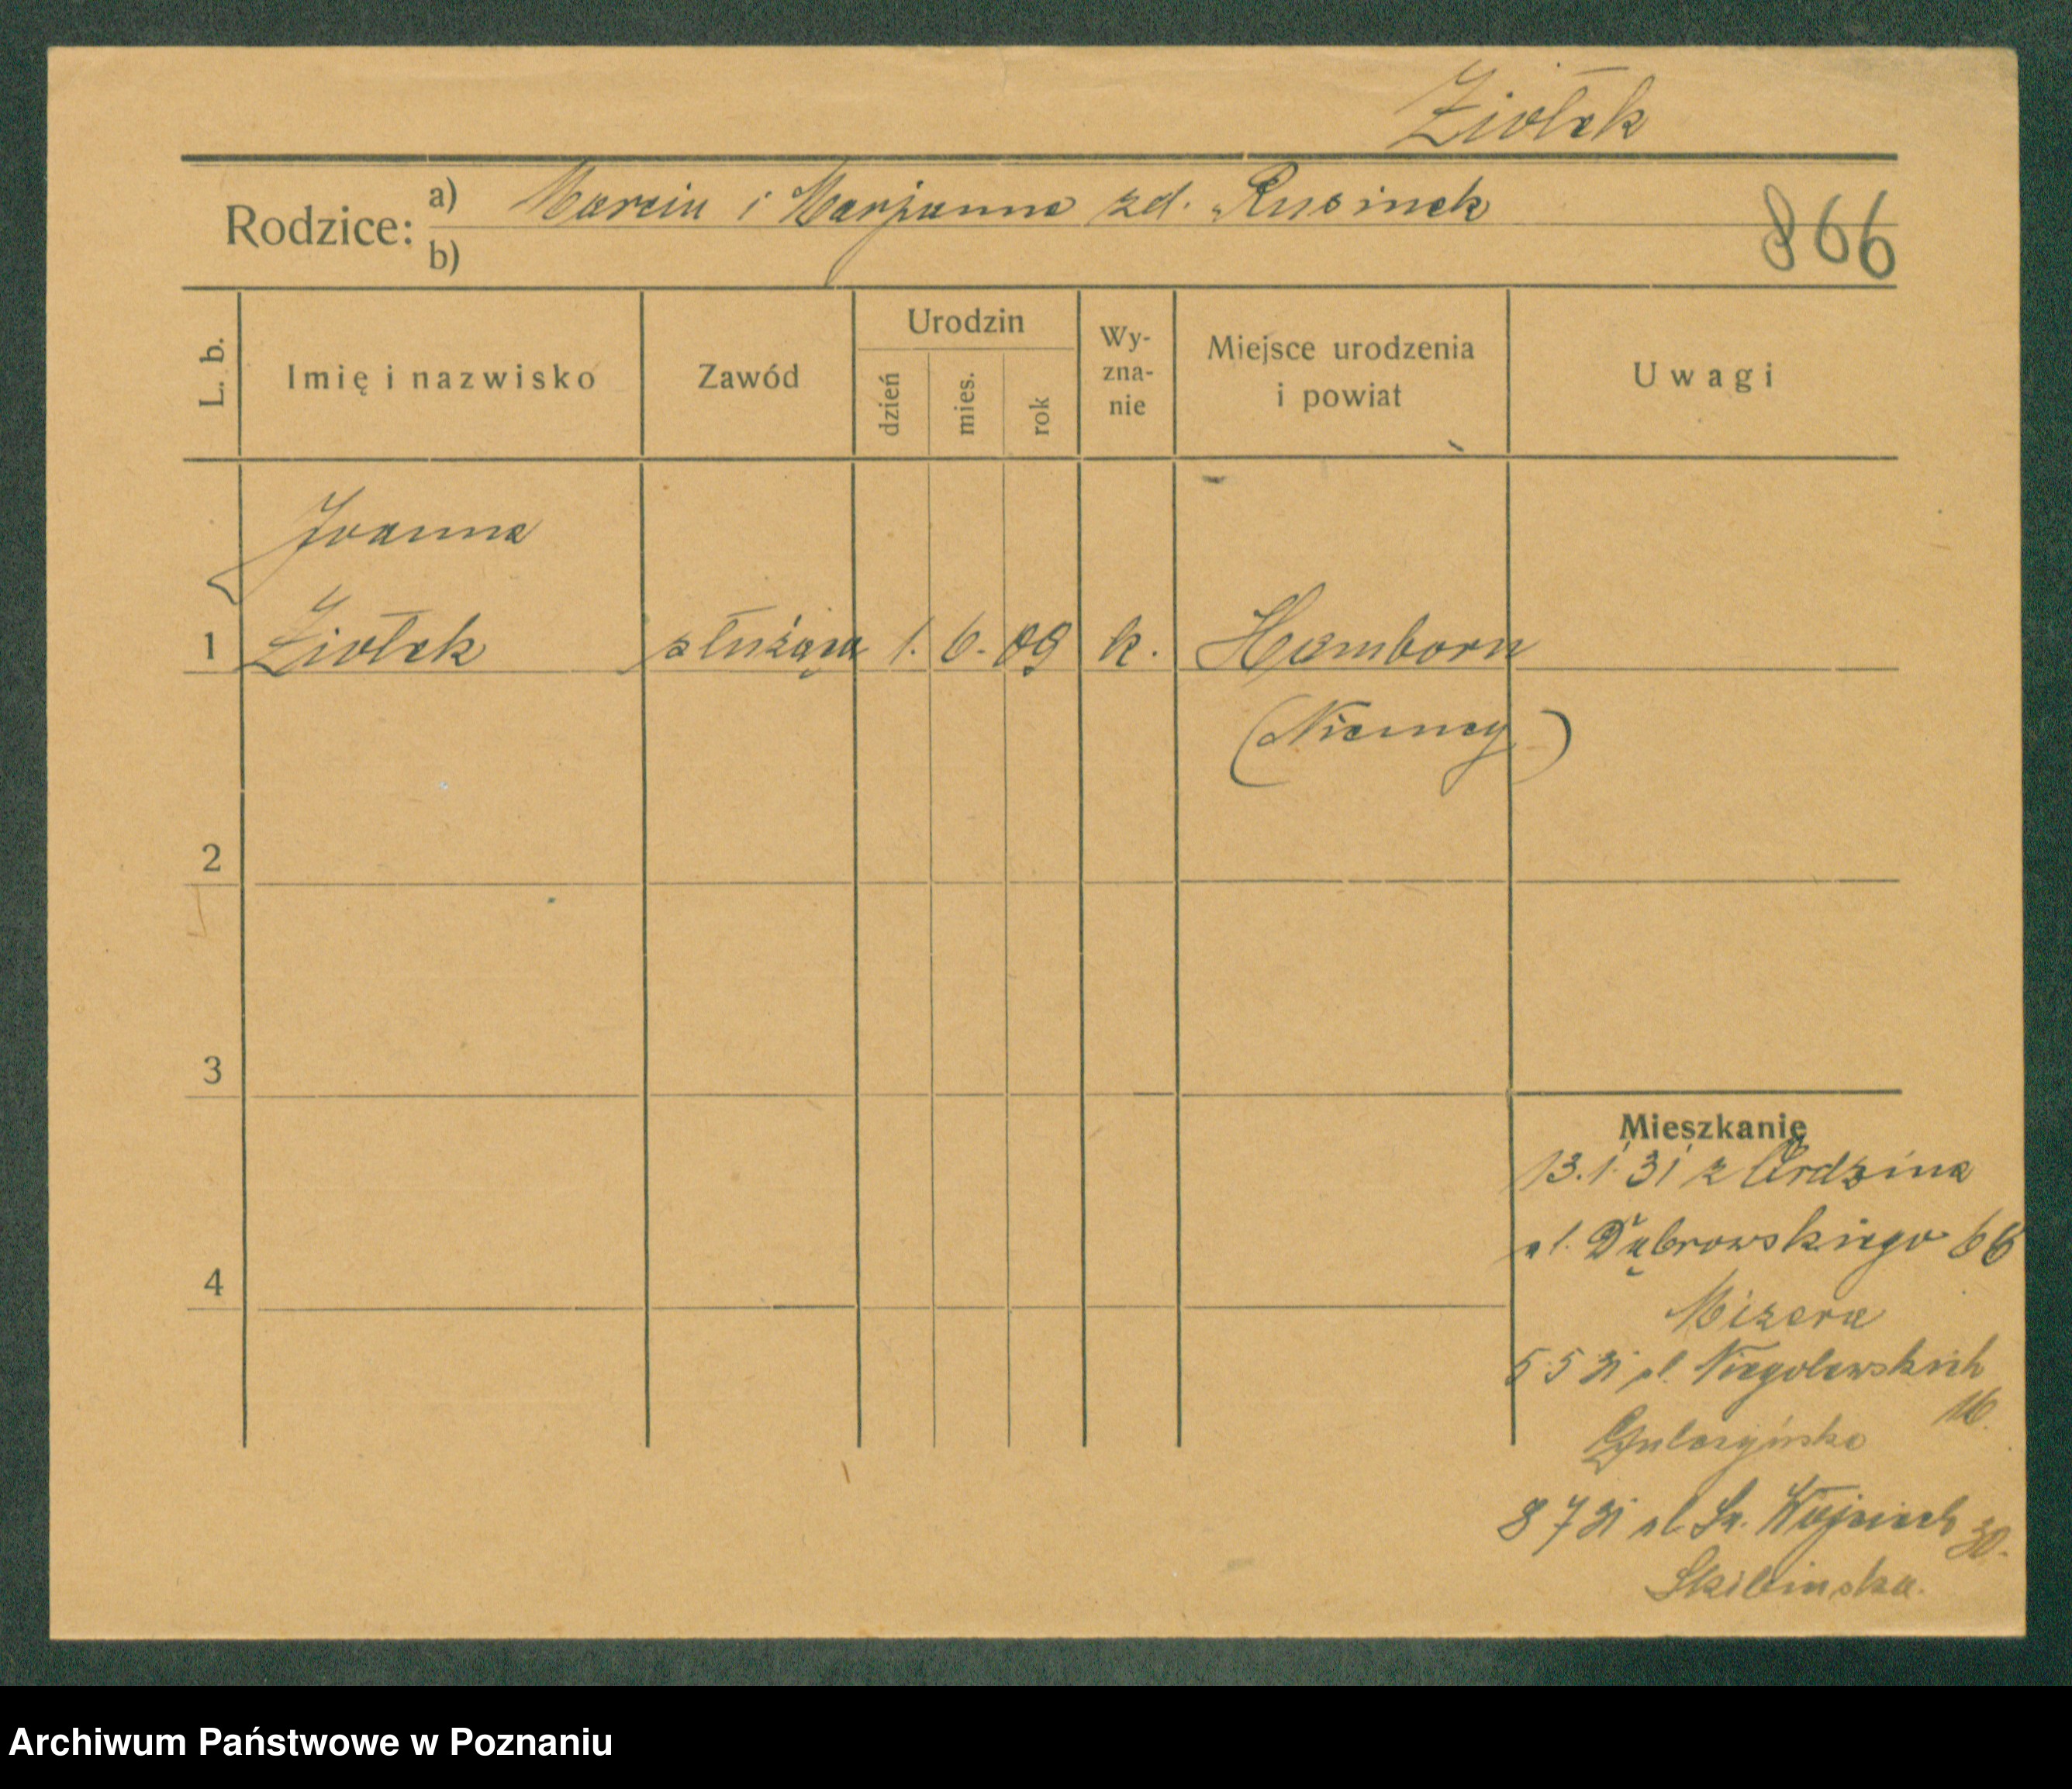 Ziołek
Rodzice:
a) Marcin i Marjanna zd. Rusinek
b)
866
L. b.
Imię i nazwisko
Zawód
Urodzin
dzień
mies.
rok
Wy-
zna-
nie
Miejsce urodzenia
i powiat
Uwagi
Joanna
1 Ziołek służąca 1. 6. 09 k. Hamborn
(Niemcy)
2
3
4
Mieszkanie
13. 1. 31 z
ul. Dąbrowskiego 66
Mizera
5 5 31 ul. Niegolewskich
16.
8 7 31 ul. Św. Wojciech 30.
Skibinska.
Archiwum Państwowe w Poznaniu